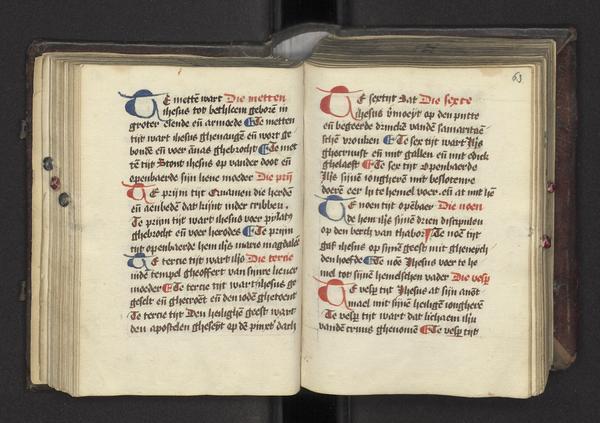 TE mettē wart Die metten
ihesus tot bethleem geborē in
groter elende eñ armoede Te metten
tijt wart ihesus ghenangen eñ wort ge
bonde eñ voer ānas ghebrocht Te met
tē tijt Stont ihesus op vander doot eñ
openbaerde sijn lieue moeder Die prij
TE prijm tijt Quamen die herdē
eñ aenbedē dat kijnt inder cribben.
Te prijm tijt wart ihesus voer pylatū
ghebrocht eñ voer herodes Te prijm
tijt openbaerde hem ihūs marie magdalenē
TE tercie tijt wart ihūs Die tercie
indē tempel gheoffert van sijnre lieuer
moeder Te tercie tijt wart ihesus ge
geselt eñ ghecroēt eñ den iodē ghetoent
Te tercie tijt Den heilighē geest wart
den apostelen gheseyt op dē pinxt dach
63
TE sextijt Sat Die sexte
ihesus v̄moeyt op den putte
eñ begeerde drinckē vandē samaritaē
schē vrouken Te sex tijt wart Ihūs
ghecruust eñ mit gallen eñ mit edick
ghelaeft Te sex tijt Openbaerde
Ihūs sijnē iongherē mit besloten
doerē eer hi te hemel voer eñ at mit hē
TE noen tijt opēbaer Die noen
de hem ihūs sijnē drien discipulen
op den berch van thabor Te noē tijt
gaf ihesus op sijnē geest mit gheneychdē
den hoefde Te noē Ihesus voer te he
mel tot sijnē hemelschen vader Die vesp
TE vesp tijt Ihesus at sijn auōt
mael mit sijnē heiligē iongherē
Te vesp tijt wart dat lichaem ihū
vandē cruus ghenomē Te vesp tijt